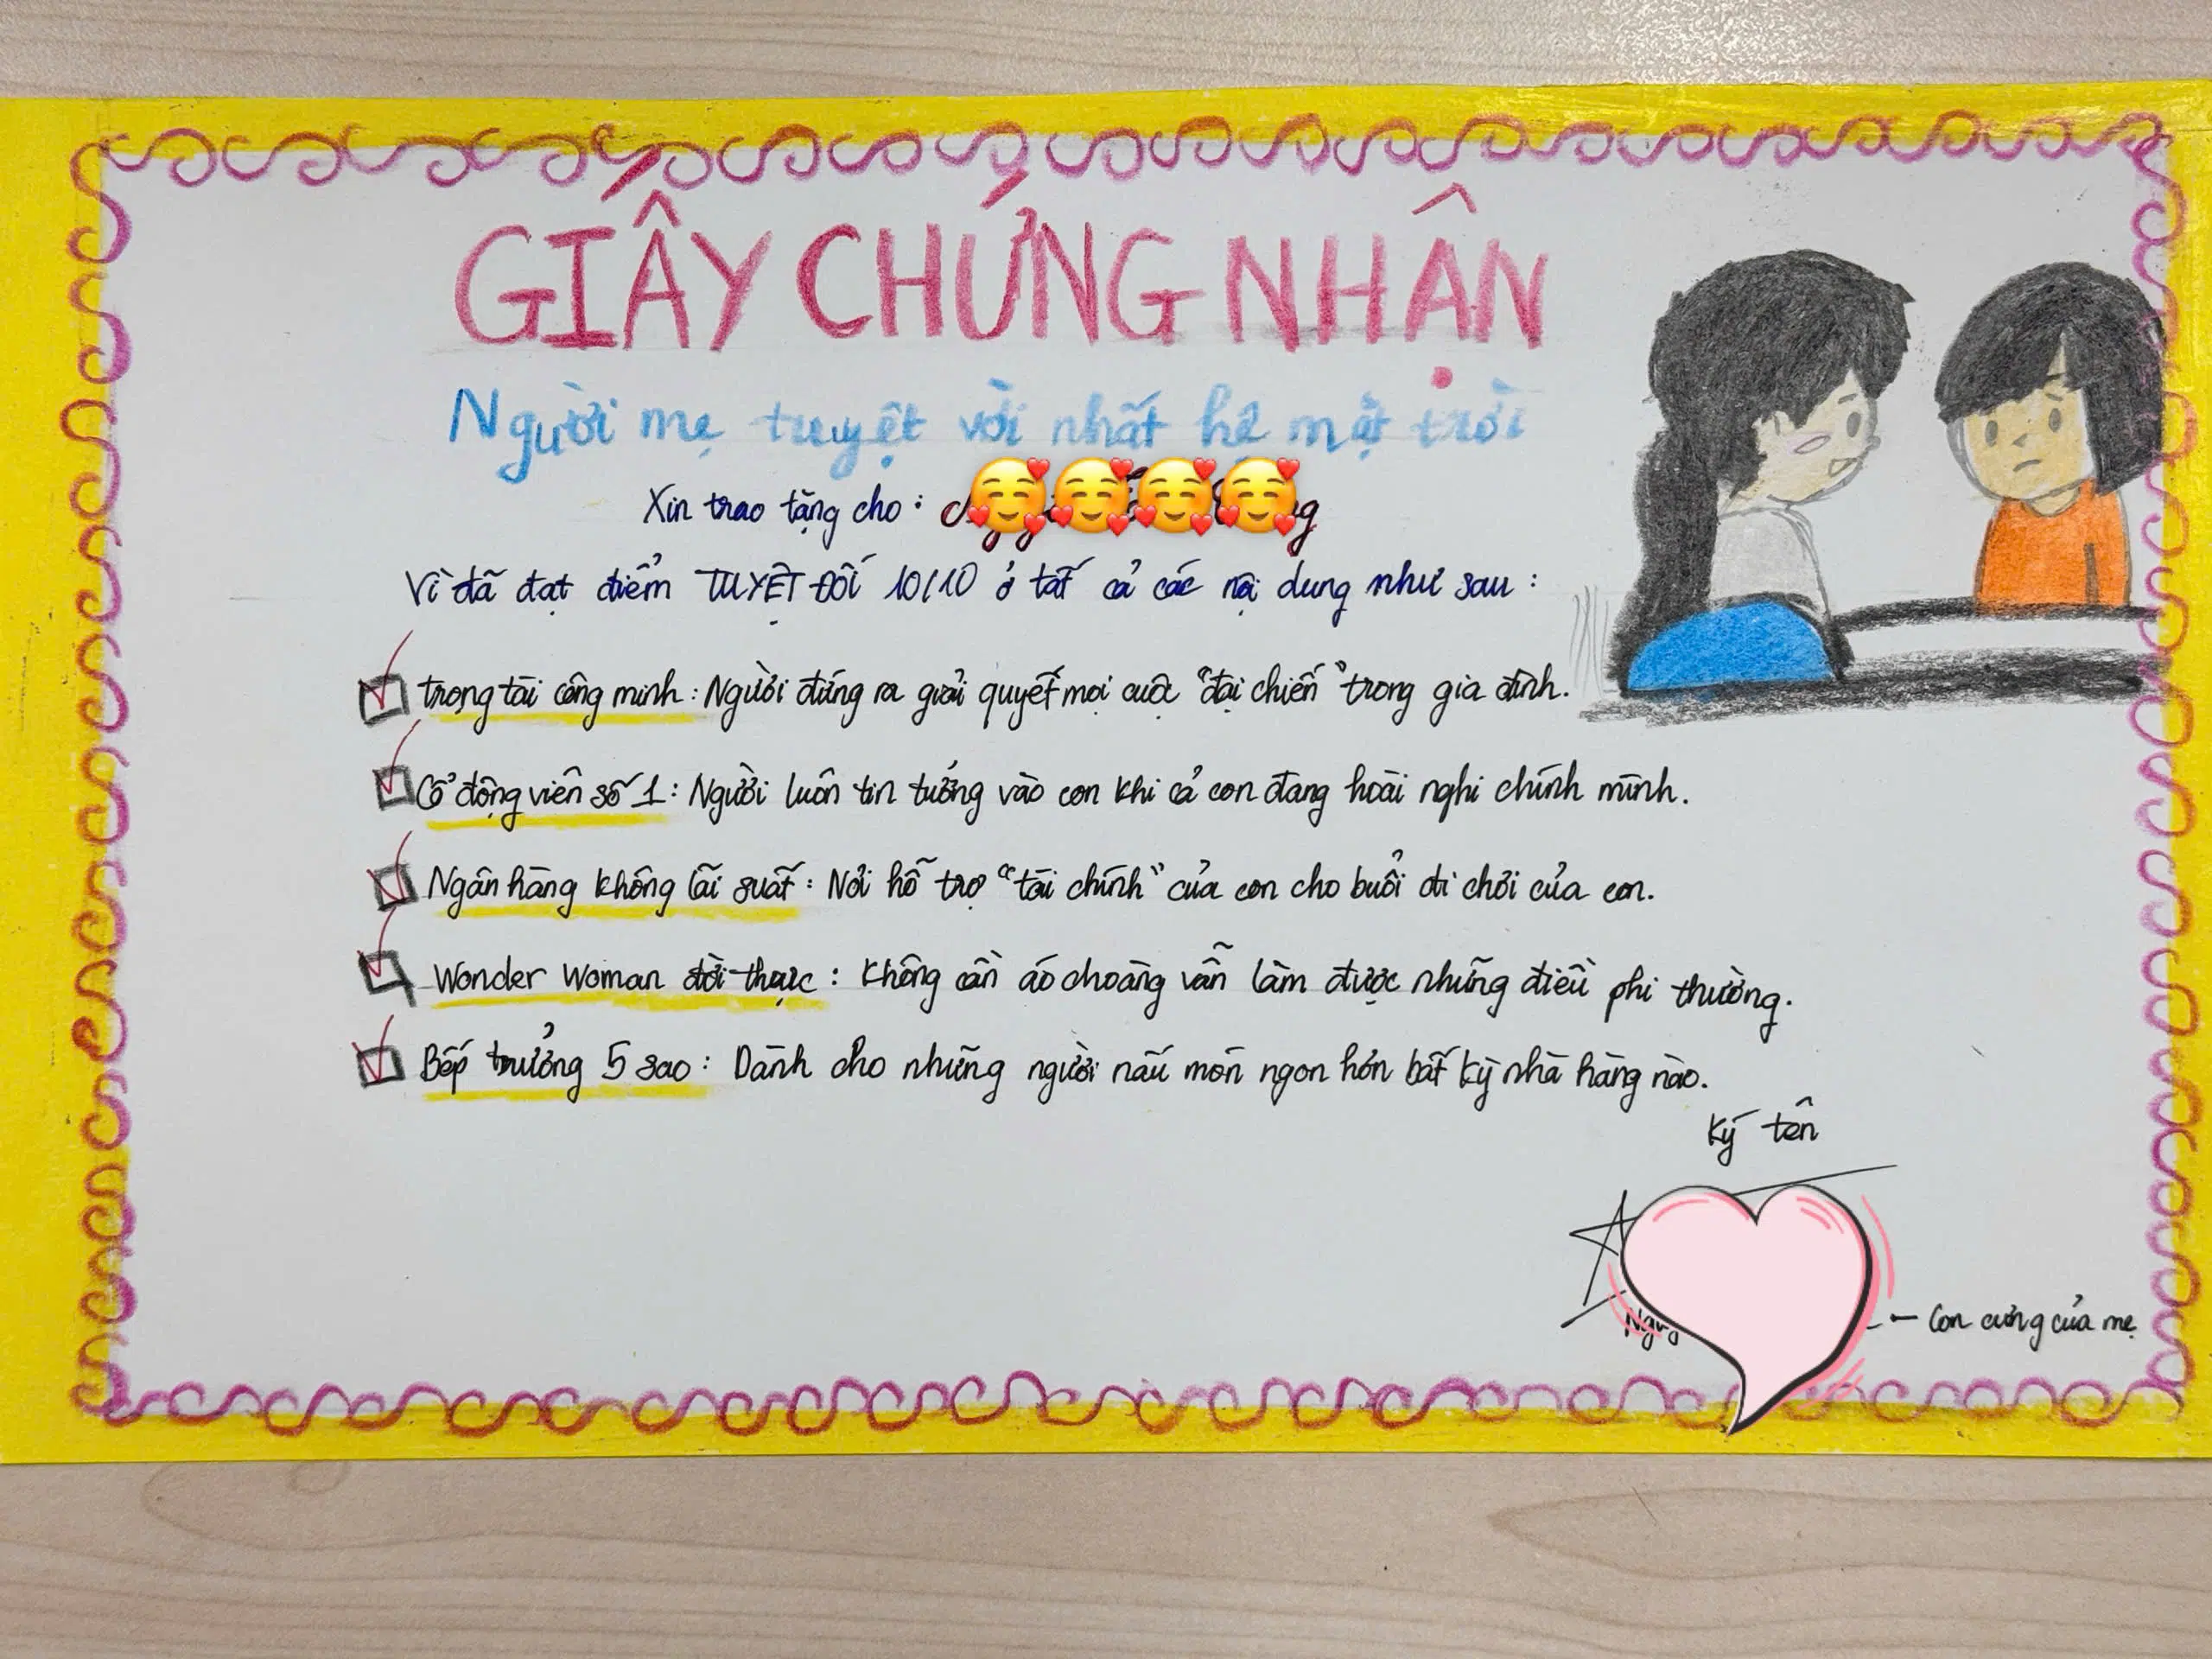 GIẤY CHỨNG NHẬN
Người mẹ tuyệt vời nhất hệ mặt trời
Xin trao tặng cho:
Vì đã đạt điểm TUYỆT ĐỐI 10/10 ở tất cả các nội dung như sau:
trọng tài công minh: Người đứng ra giải quyết mọi cuộc "đại chiến" trong gia đình.
Cổ động viên số 1: Người luôn tin tưởng vào con khi cả con đang hoài nghi chính mình.
Ngân hàng không lãi suất: Nơi hỗ trợ "tài chính" của con cho buổi đi chơi của con.
Wonder Woman đời thực: Không cần áo choàng vẫn làm được những điều phi thường.
Bếp trưởng 5 sao: Dành cho những người nấu món ngon hơn bất kỳ nhà hàng nào.
Ký tên
- Con cưng của mẹ